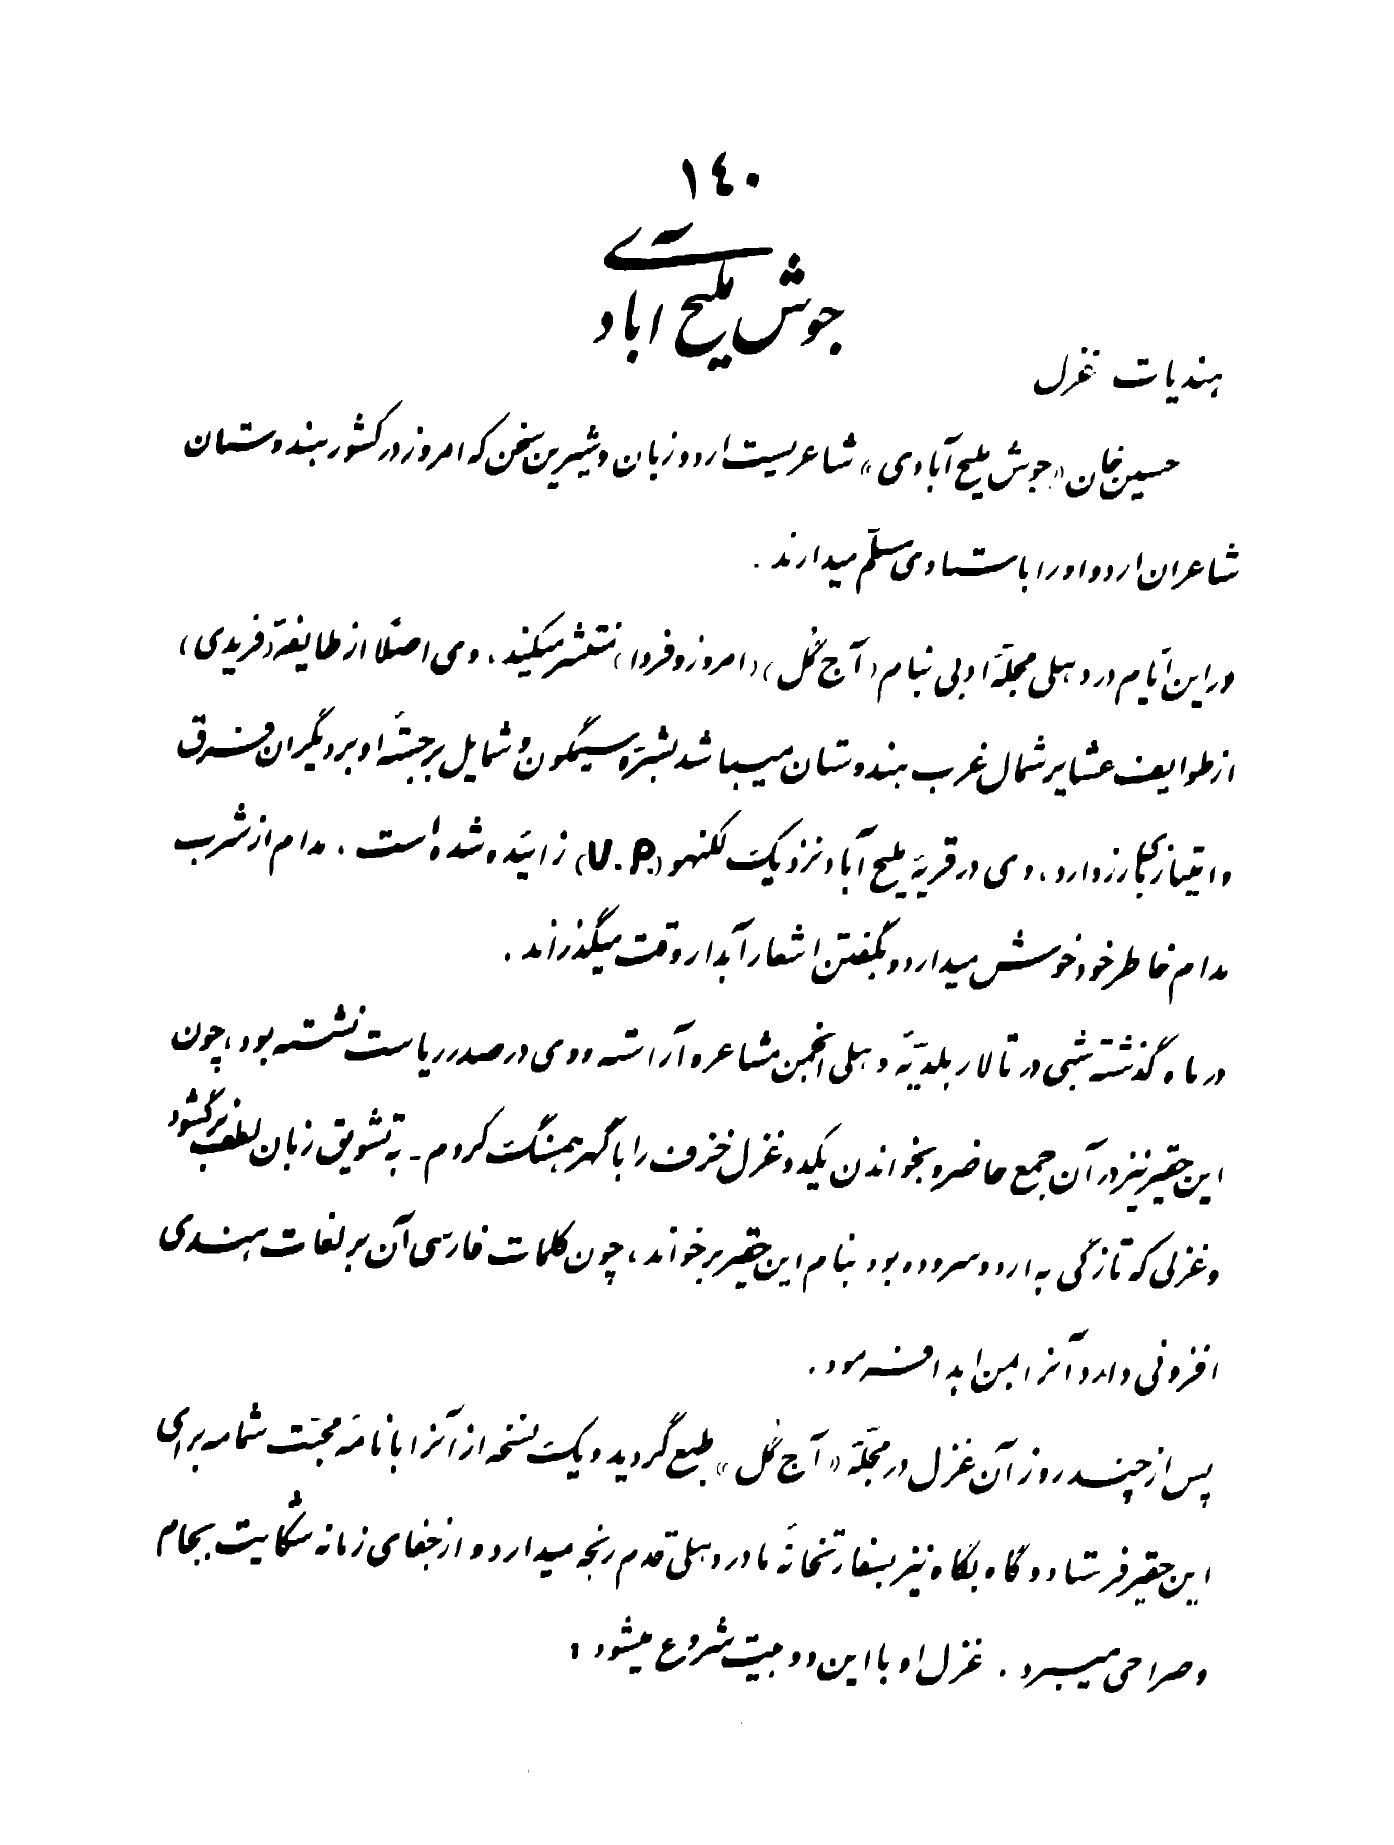 ١٤٠
جوش ملیح آبادی
هندیات غزل
حسین خان «جوش ملیح آبادی» شاعریست اردو زبان و شیرین سخن که امروز در کشور هندوستان
شاعران اردو او را باستادی مسلّم میدارند .
در این ایّام در دهلی مجلّهٔ ادبی بنام (آج گُل) (امروز و فردا) منتشر میکند ، وی اصلًا از طایفهٔ (فریدی)
از طوایف عشایر شمال غرب هندوستان میباشد بشرَه سیمگون و شمایل برجستهٔ او بر دیگران فرق
و امتیازی بارز دارد ، وی در قریهٔ ملیح آباد نزدیک لکنهو (U.P.) زائیده شده است . مدام از شرب
مدام خاطر خود خوش میدارد و بگفتن اشعار آبدار وقت میگذراند .
در ماه گذشته شبی در تالار بلدیّهٔ دهلی انجمن مشاعره آراسته و وی در صدر ریاست نشسته بود ، چون
این حقیر نیز در آن جمع حاضر و بخواندن یکدو غزل خزف را با گهر همسنگ کردم - به تشویق زبان لطف برگشود
و غزلی که تازگی به اردو سروده بود بنام این حقیر بر خواند ، چون کلمات فارسی آن بر لغات هندی
افزونی دارد آنرا بمن اهدا فرمود .
پس از چند روز آن غزل در مجلّهٔ «آج گُل» طبع گردید و یک نسخه از آنرا با نامهٔ محبّت شمامه برای
این حقیر فرستاد و گاه بگاه نیز بسفارتخانهٔ ما در دهلی قدم رنجه میدارد و از جفای زمانه شکایت بجام
و صراحی میبرد . غزل او با این دو بیت شروع میشود :